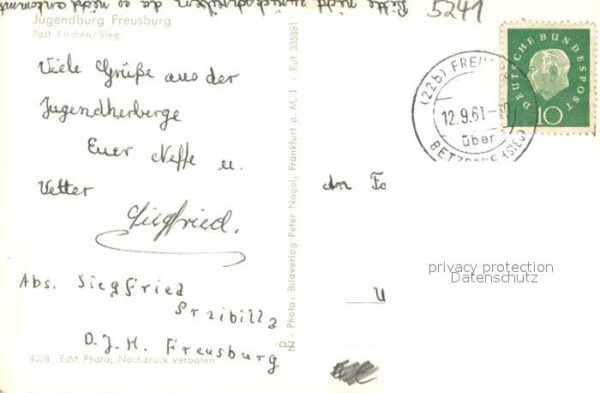 Bitte nicht zurückschreiben da es nicht ankommt
5241
Jugendburg Freusburg
Post Kirchen/Sieg
Viele Grüße aus der
Jugendherberge
Euer Neffe u.
Vetter
Siegfried.
Abs. Siegfried
Przibilla
D.J.H. Freusburg
4228 Echt Photo, Nachdruck verboten
- Photo: Bildverlag Peter Nagel, Frankfurt a. M. 1 - Ruf 335881
DEUTSCHE BUNDESPOST
10
(22b)
12.9.61
über
BETZDORF (SIEG)
An
privacy protection
Datenschutz